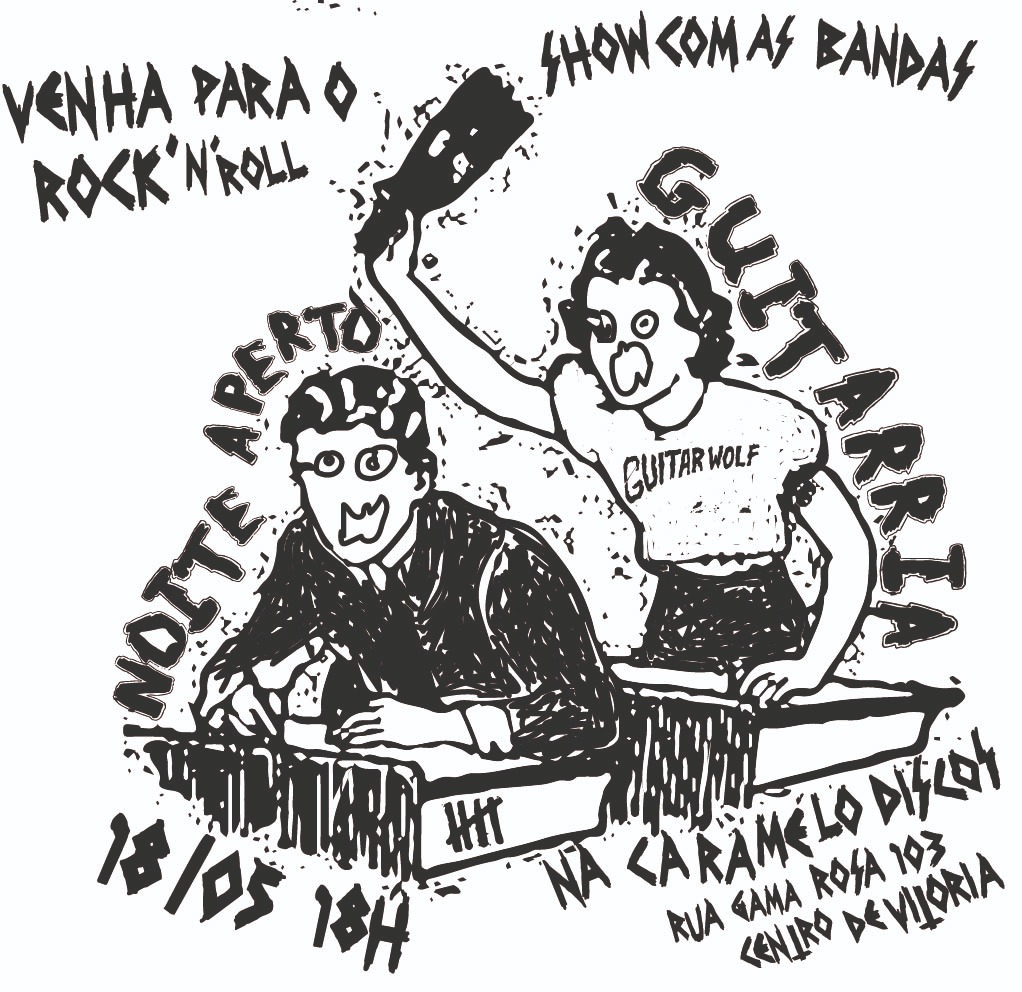 VENHA PARA O
ROCK'N'ROLL
SHOW COM AS BANDAS
NOITE APERTO
GUITARRIA
GUITAR WOLF
18/05 18H
NA CARAMELO DISCOS
RUA GAMA ROSA 103
CENTRO DE VITORIA